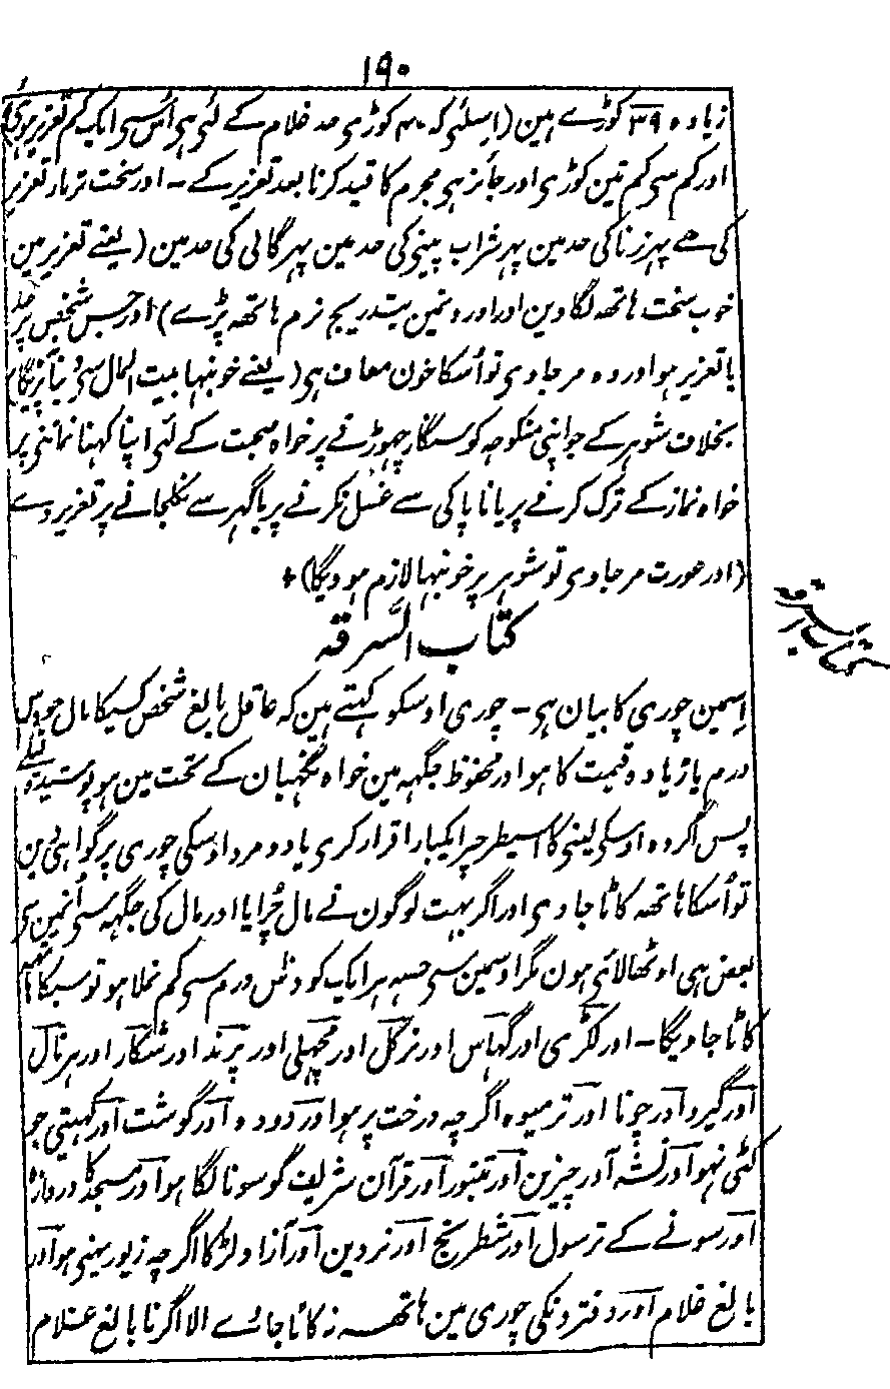 ۱۹۰
زیادہ ۳۹ کوڑے ہین (اِسلئی کہ ۴۰ کوڑی حد غلام کے لئی ہی اُس سی ایک کم تعزیر ہوئی)
اور کم سی کم تین کوڑی اور جائز ہی مجرم کا قید کرنا بعد تعزیر کے ۔ اور سخت تر مار تعزیر
کی ہے پہر زنا کی حد مین پہر شراب پینی کی حد مین پہر گالی کی حد مین (یعنے تعزیر مین
خوب سخت ہاتھہ لگا دین اور اورونمین بتدریج نرم ہاتھہ پڑے) اور جس شخص پر حد
یا تعزیر ہو اور وہ مر جاوی تو اُسکا خون معاف ہی (یعنے خونبہا بیت المال سی دُنیا نپڑیگا)
بخلاف شوہر کے جو اپنی منکوحہ کو سنگار چھوڑنے پر خواہ صحبت کے لئی اپنا کہنا نماننی پر
خواہ نماز کے ترک کرنے پر یا ناپاکی سے غسل نکرنے پر یا گہر سے نکلجانے پر تعزیر دے
(اور عورت مر جاوی تو شوہر پر خونبہا لازم ہوویگا) +
کتاب السَّرقہ
کتاب السرقہ
اِسمین چوری کا بیان ہی ۔ چوری اوسکو کہتے ہین کہ عاقل بالغ شخص کسیکا مال جو دس
درم یا زیادہ قیمت کا ہو اور محفوظ جگہہ مین خواہ نگہبان کے تحت مین ہو پوشیدہ لیلے
پس اگر وہ اوسکی لینی کا اسیطرحپر ایکبار اقرار کری یا دو مرد اوسکی چوری پر گواہی دین
تو اُسکا ہاتھہ کاٹا جاوی اور اگر بہت لوگون نے مال چُرایا اور مال کی جگہہ سی اُنمین سی
بعض ہی اوٹھا لائی ہون مگر اوسمین سی حصہ ہر ایک کو دس درم سی کم نملا ہو تو سبکا ہاتھہ
کاٹا جاویگا ۔ اور لکڑی اور گہاس اور نرکل اور مچھلی اور پرند اور شکار اور ہرتال
اور گیرو اور چونا اور تر میوہ اگرچہ درخت پر ہو اور دودہ اور گوشت اور کہیتی جو
کٹی نہو اور نشہ آور چیزین اور تنبور اور قرآن شریف گو سونا لگا ہو اور مسجد کا دروازہ
اور سونے کے ترسول اور شطرنج اور نردین اور آزاد لڑکا اگرچہ زیور پہنی ہو اور
بالغ غلام اور دفترونکی چوری مین ہاتھہ نہ کاٹا جائے الا اگر نابالغ غلام